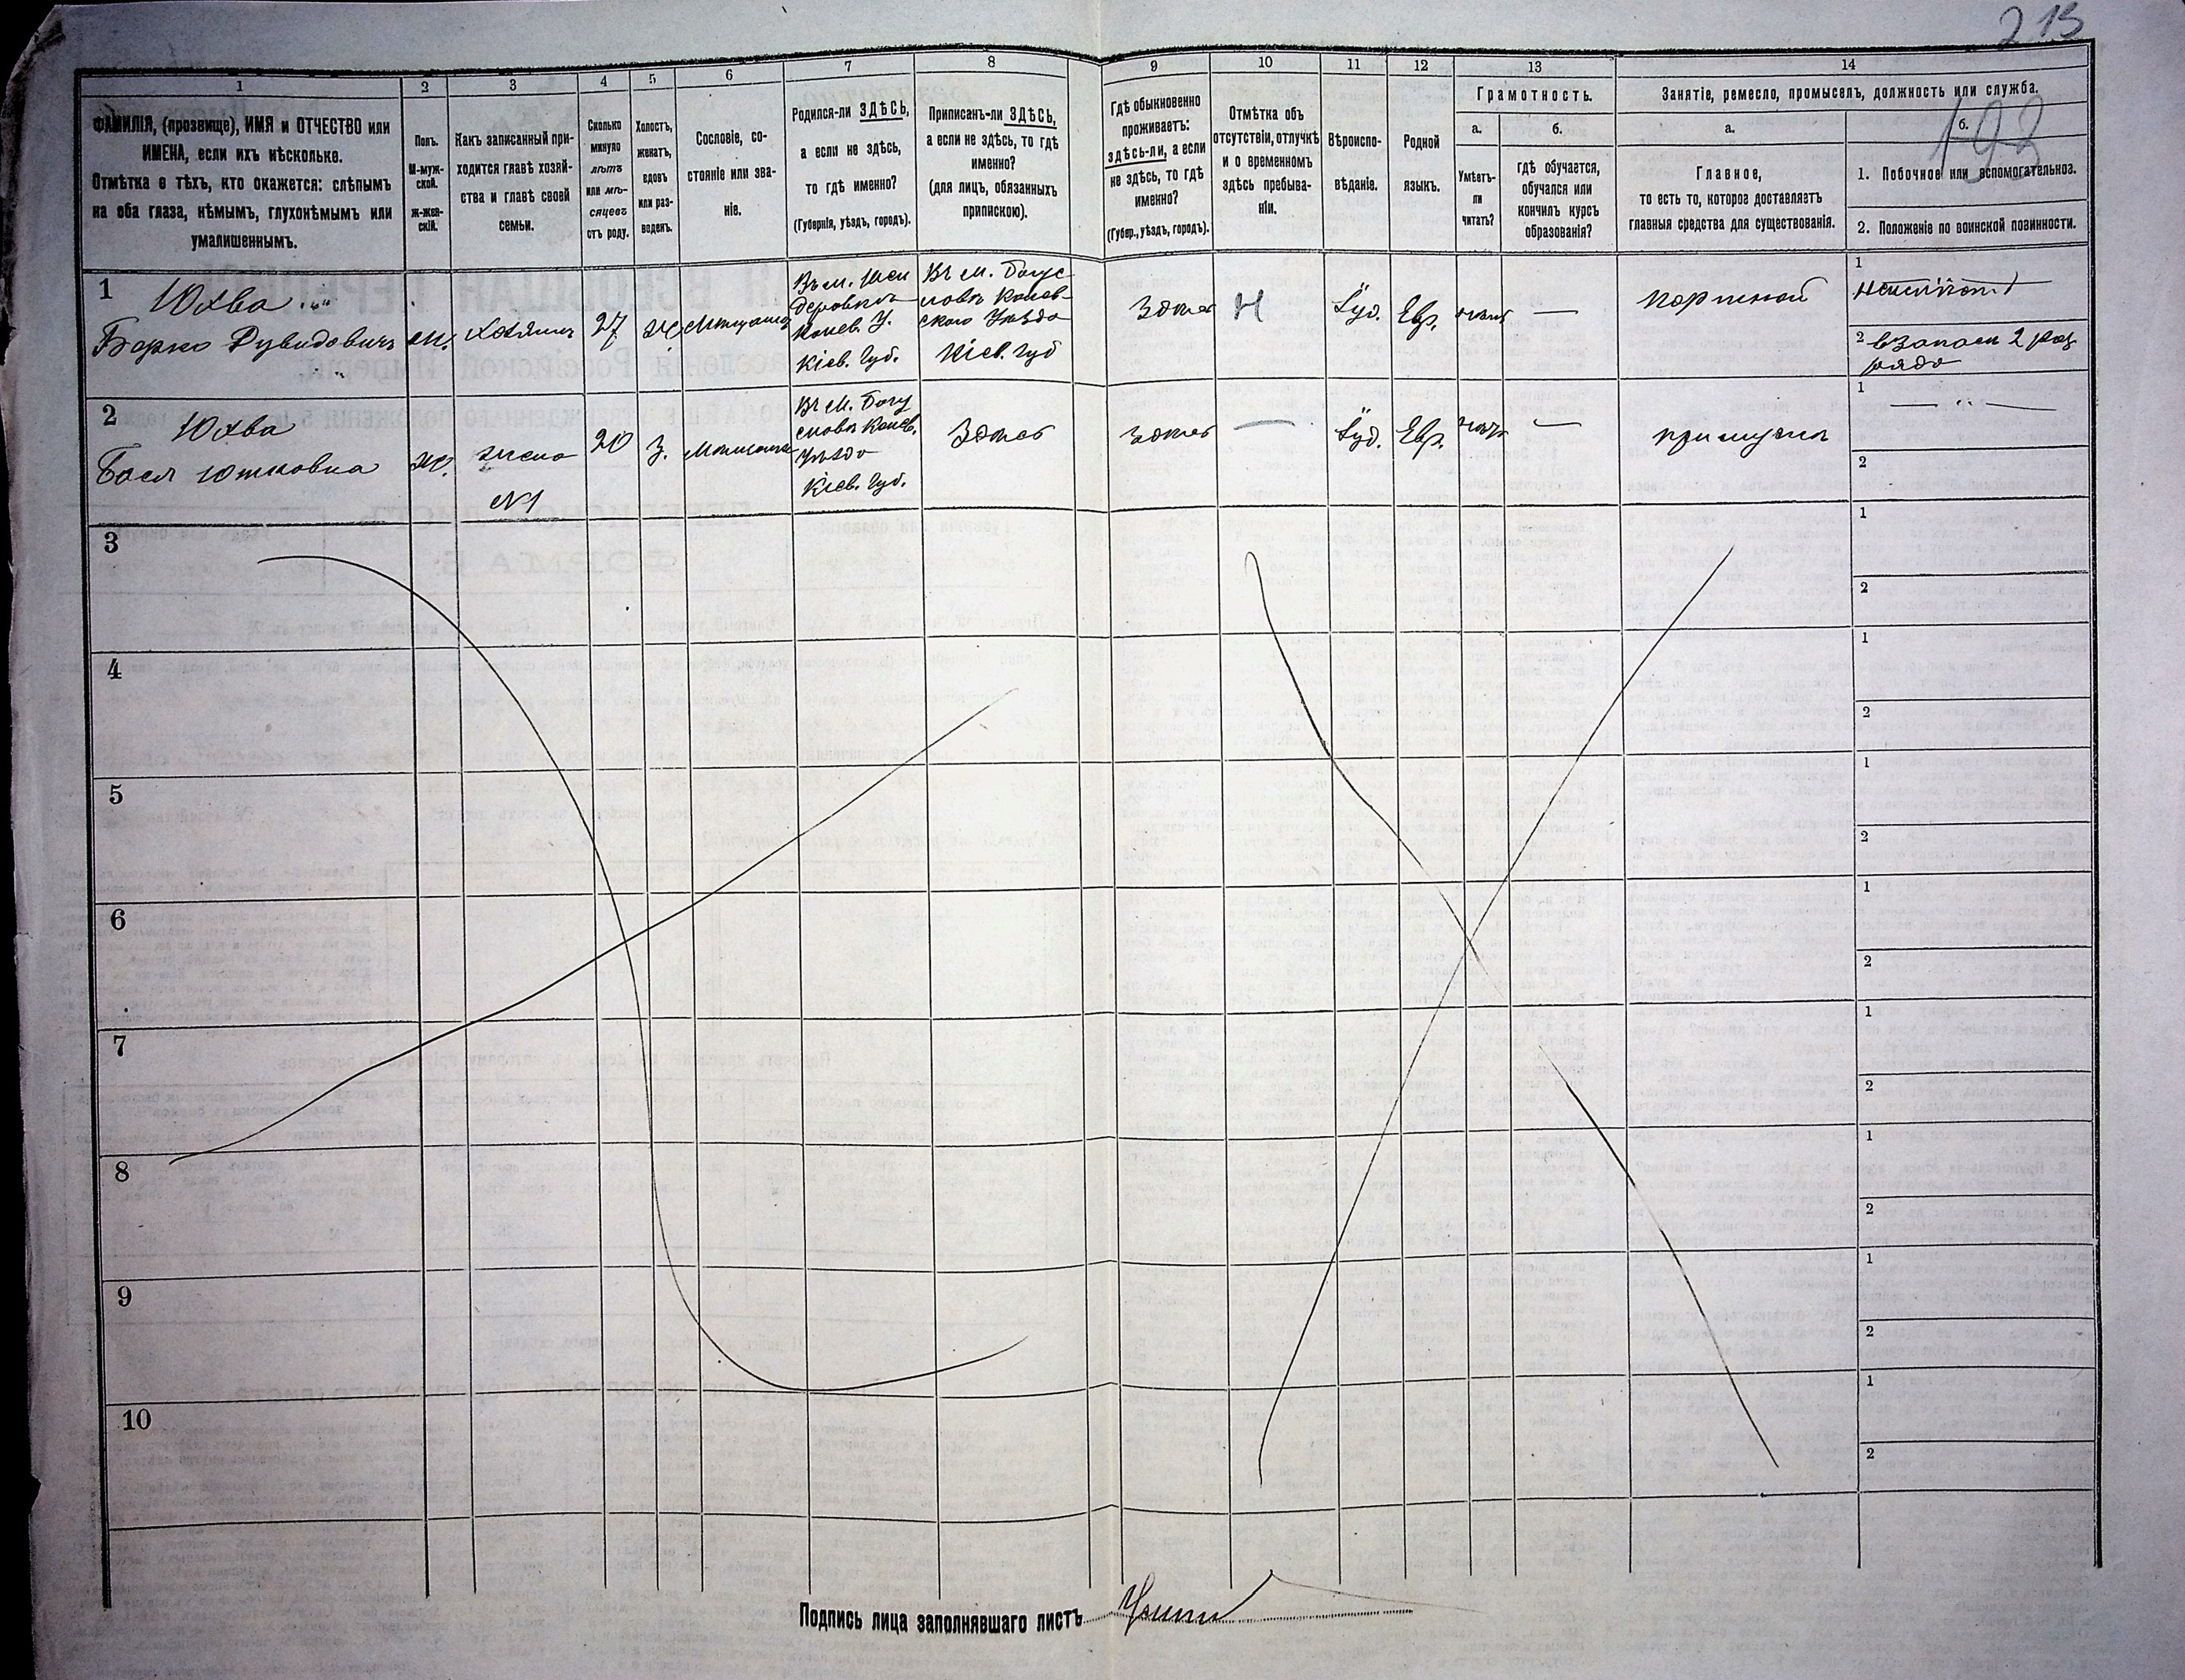 213
193
1
2
3
4
5
6
7
8
9
10
11
12
13
14
ФАМИЛІЯ, (прозвище), ИМЯ и ОТЧЕСТВО или
ИМЕНА, если ихъ нѣсколько.
Отмѣтка о тѣхъ, кто окажется: слѣпымъ
на оба глаза, нѣмымъ, глухонѣмымъ или
умалишеннымъ.
Полъ.
М-муж-
ской.
Ж-жен-
скій.
Какъ записанный при-
ходится главѣ хозяй-
ства и главѣ своей
семьи.
Сколько
минуло
лѣтъ
или мѣ-
сяцевъ
отъ роду.
Холостъ,
женатъ,
вдовъ
или раз-
веденъ.
Сословіе, со-
стояніе или зва-
ніе.
Родился-ли ЗДѢСЬ,
а если не здѣсь,
то гдѣ именно?
(Губернія, уѣздъ, городъ).
Приписанъ-ли ЗДѢСЬ,
а если не здѣсь, то гдѣ
именно?
(для лицъ, обязанныхъ
припискою).
Гдѣ обыкновенно
проживаетъ:
здѣсь-ли, а если
не здѣсь, то гдѣ
именно?
(Губер., уѣздъ, городъ).
Отмѣтка объ
отсутствіи, отлучкѣ
и о временномъ
здѣсь пребыва-
ніи.
Вѣроиспо-
вѣданіе.
Родной
языкъ.
Грамотность.
а.
Умѣетъ-
ли
читать?
б.
гдѣ обучается,
обучался или
кончилъ курсъ
образованія?
Занятіе, ремесло, промыселъ, должность или служба.
а.
Главное,
то есть то, которое доставляетъ
главныя средства для существованія.
б.
1. Побочное или вспомогательное.
2. Положеніе по воинской повинности.
1
Юхва
Берко Дувидовичъ
м.
хозяинъ
27
ж
Мѣщанинъ
Канев. У.
Кіев. Губ.
Въ м. Богус-
лавѣ Канев-
скаго Уѣзда
Кіев. Губ
Здѣсь
Н
Іуд.
Евр.
—
портной
1
2 взапасѣ 2 раз
ряда
2
Юхва
Бася
ж.
жена
№1
20
З.
Мѣщанка
Въ м. Богу
славѣ Канев.
Уѣзда
Кіев. Губ.
Здѣсь
Здѣсь
—
Іуд.
Евр.
—
при мужѣ
1
2
3
1
2
4
1
2
5
1
2
6
1
2
7
1
2
8
1
2
9
1
2
10
1
2
Подпись лица заполнявшаго листъ